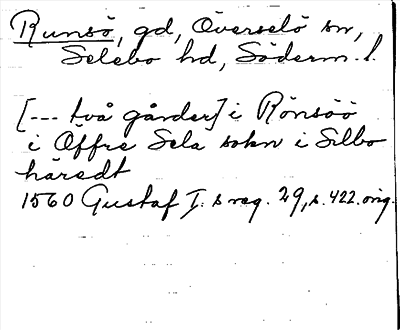 Runsö, gd, Överselö sn,
Selebo hd, Söderm. l.
[--- två gårder] i Rönsöö
i Öffre Sela sokn i Silbo
häredt
1560 Gustaf I:s reg. 29, s. 422. orig.